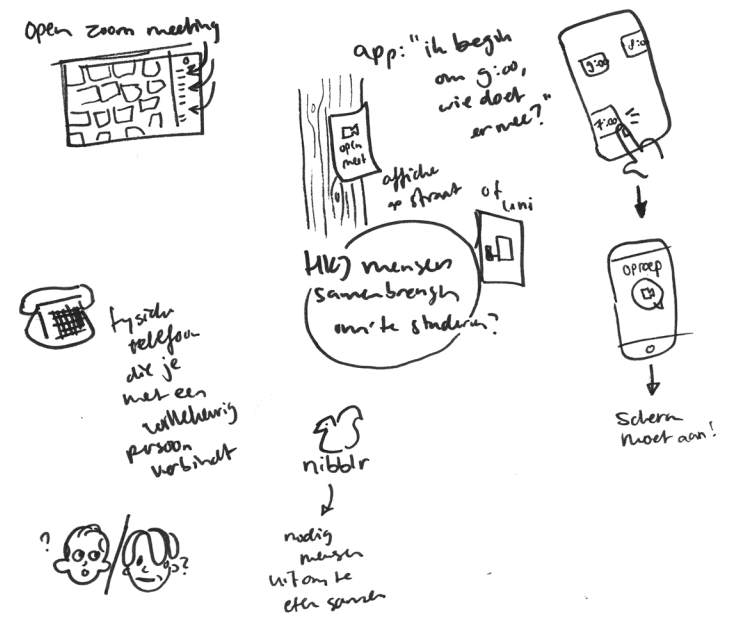 Open zoom meeting
app: "ik begin
om 9:00,
wie doet
er mee?"
9:00
7:00
open
meet
affiche
op straat
of uni
HKJ mensen
samenbrengen
om te studeren?
oproep
Scherm
moet aan!
fysieke
telefoon
die je
met een
willekeurig
persoon
verbindt
nibblr
nodig
mensen
uit om te
eten samen
?
?